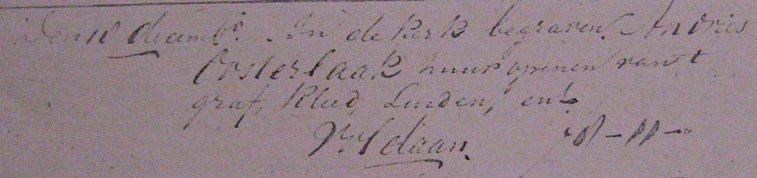 Den 10 decemb.r In de kerk begraven Andries
Oosterlaak huur openen van t
graf, Kleed, Luiden, en
Voldaan.